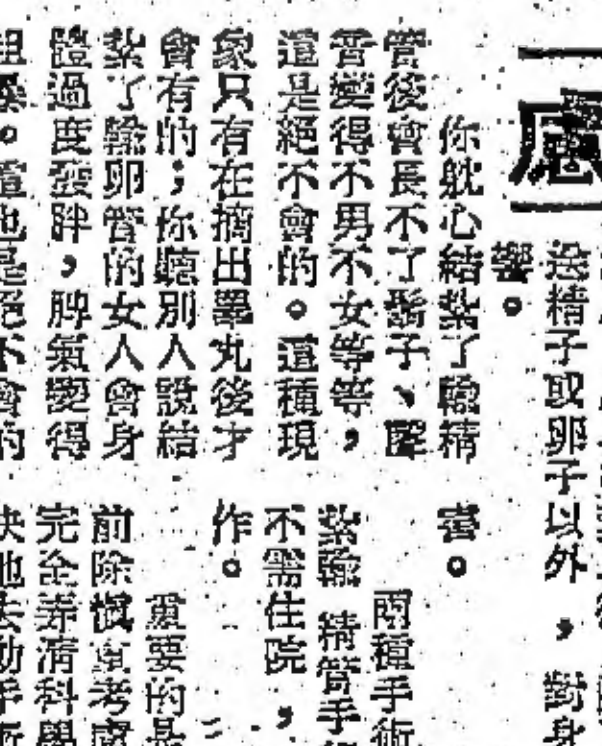 送精子或卵子以外，對身
響。
你躭心結紮了輸精
管後會長不了鬍子、聲
音變得不男不女等等，
這是絕不會的。這種現
象只有在摘出睪丸後才
會有的；你聽別人說結
紮了輸卵管的女人會身
體過度發胖，脾氣變得
。這也是絕不會的
害。
兩種手術
紮輸精管手
不需住院，
作。
重要的是
前除慎重考慮
完全弄清科學
快地去動手術